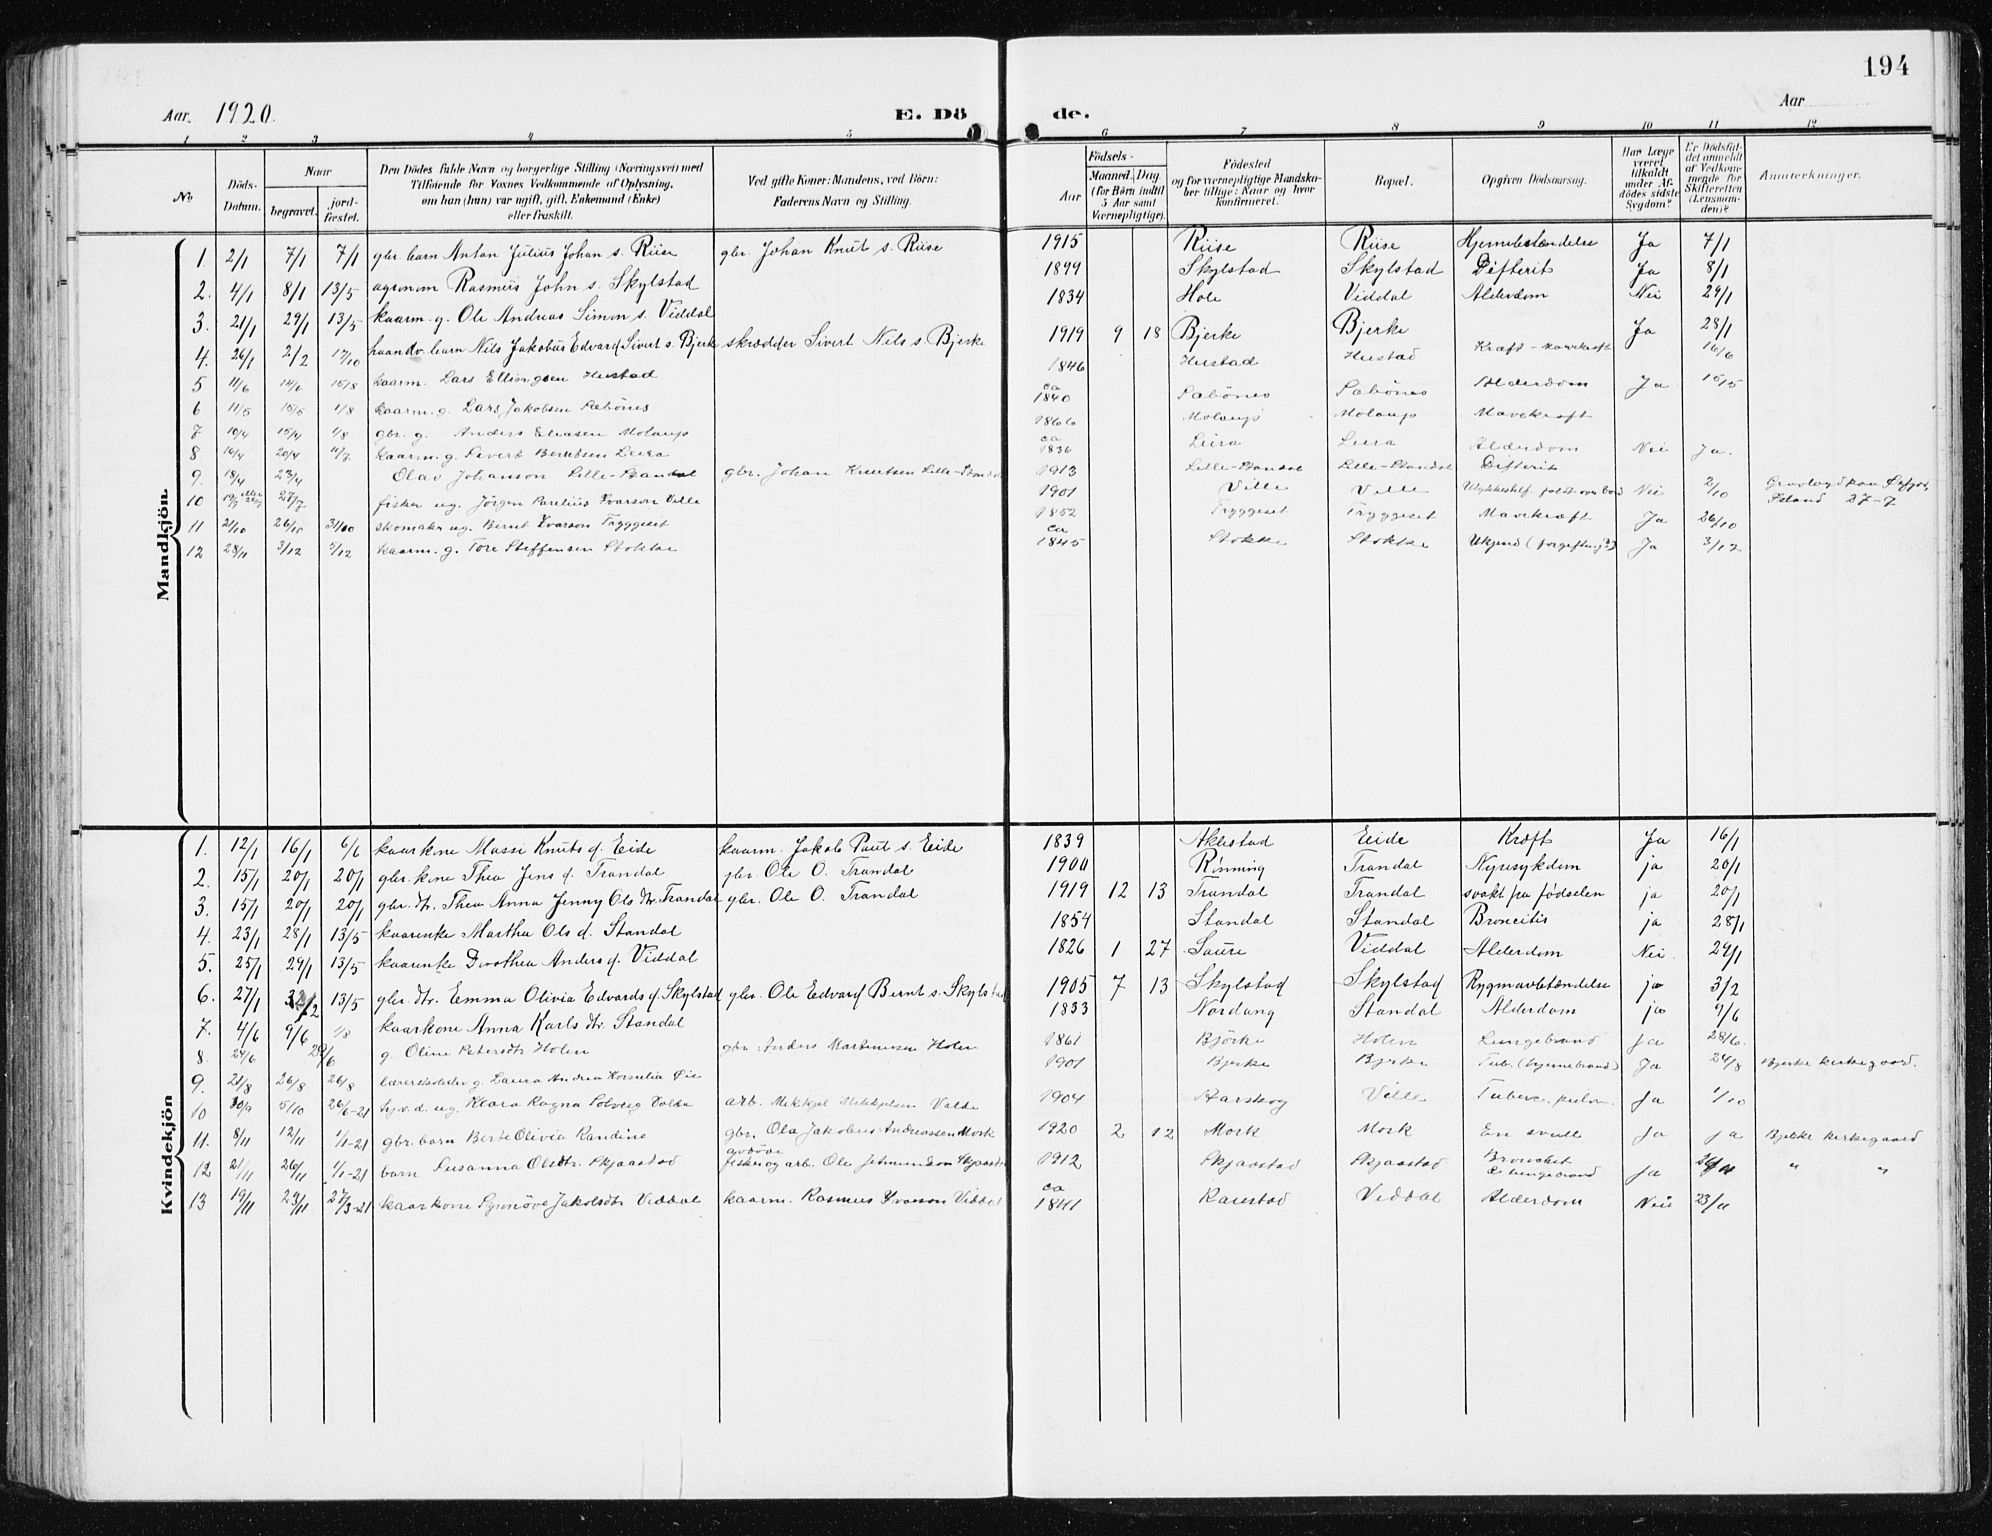 194
Aar 1920.
E. Dö de.
Aar
1 2 3 4 5 6 7 8 9 10 11 12
No
Döds-Datum.
Naar
begravet.
jordfæstet.
Den Dödes fulde Navn og borgerlige Stilling (Næringsvei) med
Tilföiende for Voxnes Vedkommende af Oplysning,
om han (hun) var ugift, gift, Enkemand (Enke)
eller fraskilt.
Ved gifte Koner: Mandens, ved Börn:
Faderens Navn og Stilling.
Födsels-
Aar
Maaned. Dag.
(for Börn indtil
5 Aar samt
Værnepligtige).
Födested
og for værnepligtige Mandska-
ber tillige: Naar og hvor
konfirmeret.
Bopæl.
Opgiven Dödsaarsag.
Har Læge
været
tilkaldt
under Af-
dödes sidste
Sygdom?
Er Dödsfal-
det anmeldt
af Vedkom-
mende for
Skifteretten
(Lensman-
den)?
Anmerkninger.
Mandkjön.
1. 2/1 7/1 7/1 gbr. barn Anton Julius Johan s. Riise gbr. Johan Knut s. Riise 1915 Riise Riise Hjernebetændelse Ja 7/1
2. 4/1 8/1 13/5 agronom Rasmus John s. Skylstad 1899 Skylstad Skylstad Difterit Ja 8/1
3. 21/1 29/1 13/5 kaarm. g. Ole Andreas Simon s. Viddal 1834 Hole Viddal Alderdom Nei 29/1
4. 26/1 2/2 17/10 haandv. barn Nils Jakobus Edvard Sivert s. Bjerke skrædder Sivert Nils s. Bjerke 1919 9 18 Bjerke Bjerke Ja 28/1
5 11/6 14/6 15/8 kaarm. Lars Ellingsen Hustad 1846 Hustad Hustad Kræft - Mavekræft 16/6
6 11/5 15/5 1/8 kaarm. g. Lars Jakobsen Sæbönes ca 1840 Sæbönes Sæbönes Alderdom Ja 15/5
7 10/4 15/4 1/8 gbr. g. Anders Eliasen Molaup 1866 Molaup Molaup Mavekræft
8 16/4 20/4 11/7 kaarm. g. Sivert Berntsen Leira ca 1836 Leira Leira Alderdom Nei Ja.
9. 18/4 23/4 Olav Johanson Lille-Standal gbr. Johan Knutsen Lille-Standal 1913 Lille-Standal Lille-Standal Difterit
10 19/7 eller 20/7 27/7 fisker ug. Jörgen Paulius Ivarson Ville 1901 Ville Ville Ulykkestilf. faldt over bord Nei 2/10 Island 27-7
11 21/10 26/10 31/10 skomaker ug. Bernt Ivarson Tryggeset 1852 Tryggeset Tryggeset Mavekræft Ja 26/10
12 28/11 3/12 5/12 kaarm. g. Tore Steffensen Stokke ca 1845 Stokke Stokke Ukjend (forgiftning?) Ja 3/12
Kvindekjön
1. 12/1 16/1 6/6 kaarkone Massi Knuts d. Eide kaarm. Jakob Paul s. Eide 1839 Aklestad Eide Kræft Ja 16/1
2. 15/1 20/1 20/1 gbr. kone Thea Jens d. Trandal gbr. Ole O. Trandal 1900 Rønning Trandal Nyresykdom ja 20/1
3. 15/1 20/1 20/1 gbr. dtr. Thea Anna Jenny Ols dtr. Trandal gbr. Ole O. Trandal 1919 12 13 Trandal Trandal svakt fra födselen ja 20/1
4. 23/1 28/1 13/5 kaarenke Martha Ols d. Standal 1854 Standal Standal Broncitis ja 28/1
5. 25/1 29/1 13/5 kaarenke Dorothea Anders d. Viddal 1826 1 27 Saure Viddal Alderdom Nei 29/1
6. 27/1 3/2 13/5 gbr. dtr. Emma Olivia Edvards d. Skylstad gbr. Ole Edvard Bernt s. Skylstad 1905 7 13 Skylstad Skylstad Rygmavbetændelse ja 3/2
7. 4/6 9/6 1/8 kaarkone Anna Karls dtr. Standal 1833 Nordang Standal Alderdom ja 9/6
8. 24/6 28/6 g. Oline Petersdtr Holen gbr. Anders Martinusen Holen 1861 Björke Holen Lungebrand Ja 28/6.
9. 21/8 26/8 26/8 g. Laura Andrea Kornelia Øie 1901 Bjerke Bjerke Tub. (hjernebrand) Ja 24/8 Bjerke kirkegaard.
10 30/9 5/10 26/6-21 tj.v.d. ug. Klara Ragna Solveig Valde arb. Mekkjel Mekkjelsen Valde 1904 Aarskog Ville Tuberc. pulm. Ja 1/10
11. 8/11 12/11 1/1-21 gbr. barn Berte Olivia Randine gbr. Ola Jakobus Andreassen Mork 1920 2 12 Mork Mork En svull Ja ja Bjerke kirkegaard
12 21/11 26/11 1/1-21 barn Susanna Olsdtr. Skjaastad avdöde fisker og arb. Ole Jetmundson Skjaastad 1912 Skjaastad Skjaastad Bronchit & lungebrand Ja 26/11 " "
13 19/11 23/11 27/3-21 kaarkone Synnöve Jakobsdtr Viddal kaarm. Rasmus Ivarson Viddal ca 1841 Raustad Viddal Alderdom Nei 23/11